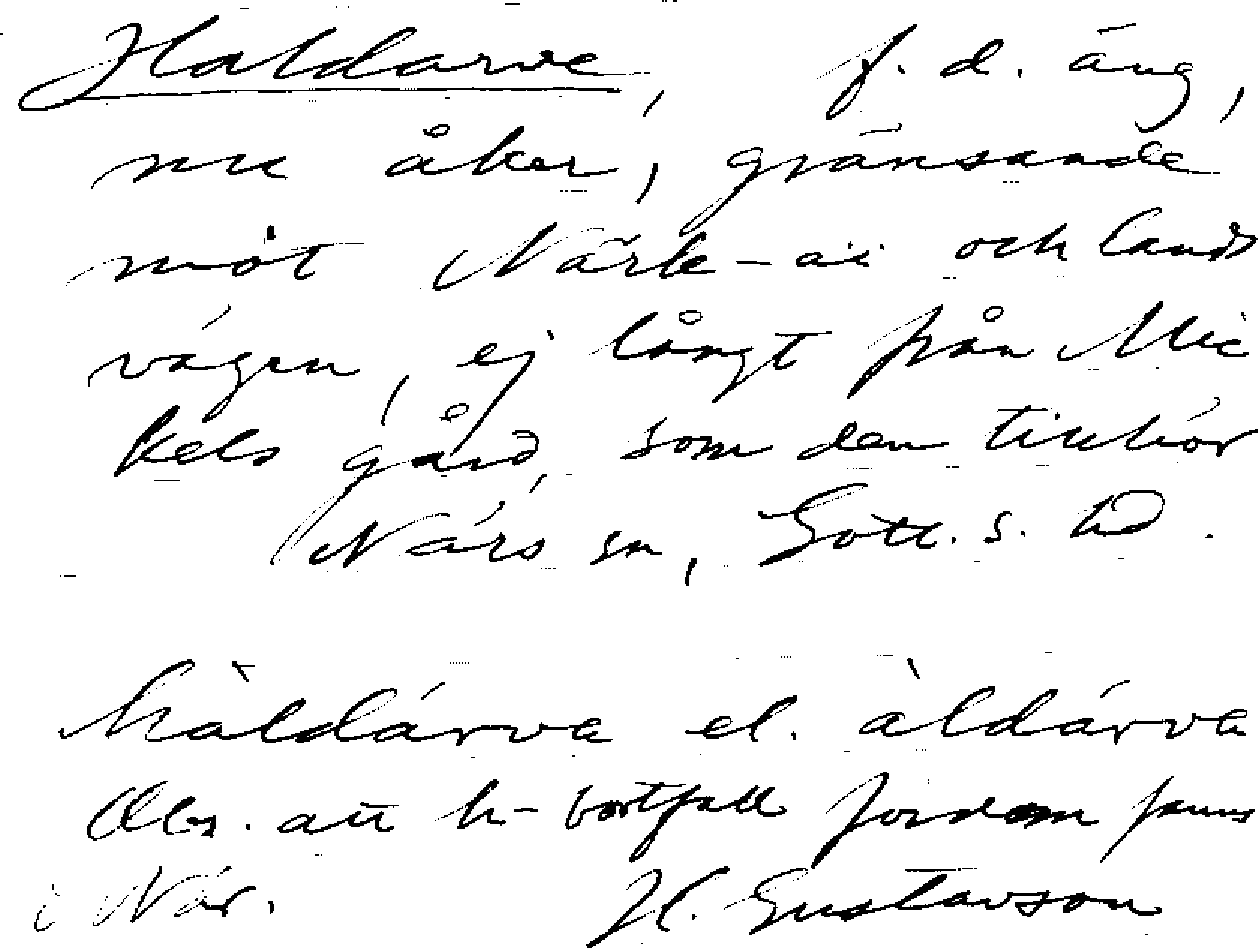 Haldarve, f. d. äng,
nu åker, gränsande
mot Närk-ai och lands
vägen, ej långt från Mic
kels gård, som den tillhör
Närs sn, Gotl. s. hd.
hàldárva el. àldárva
Obs. att h-bortfall fordom fanns
i När. H. Gustavson